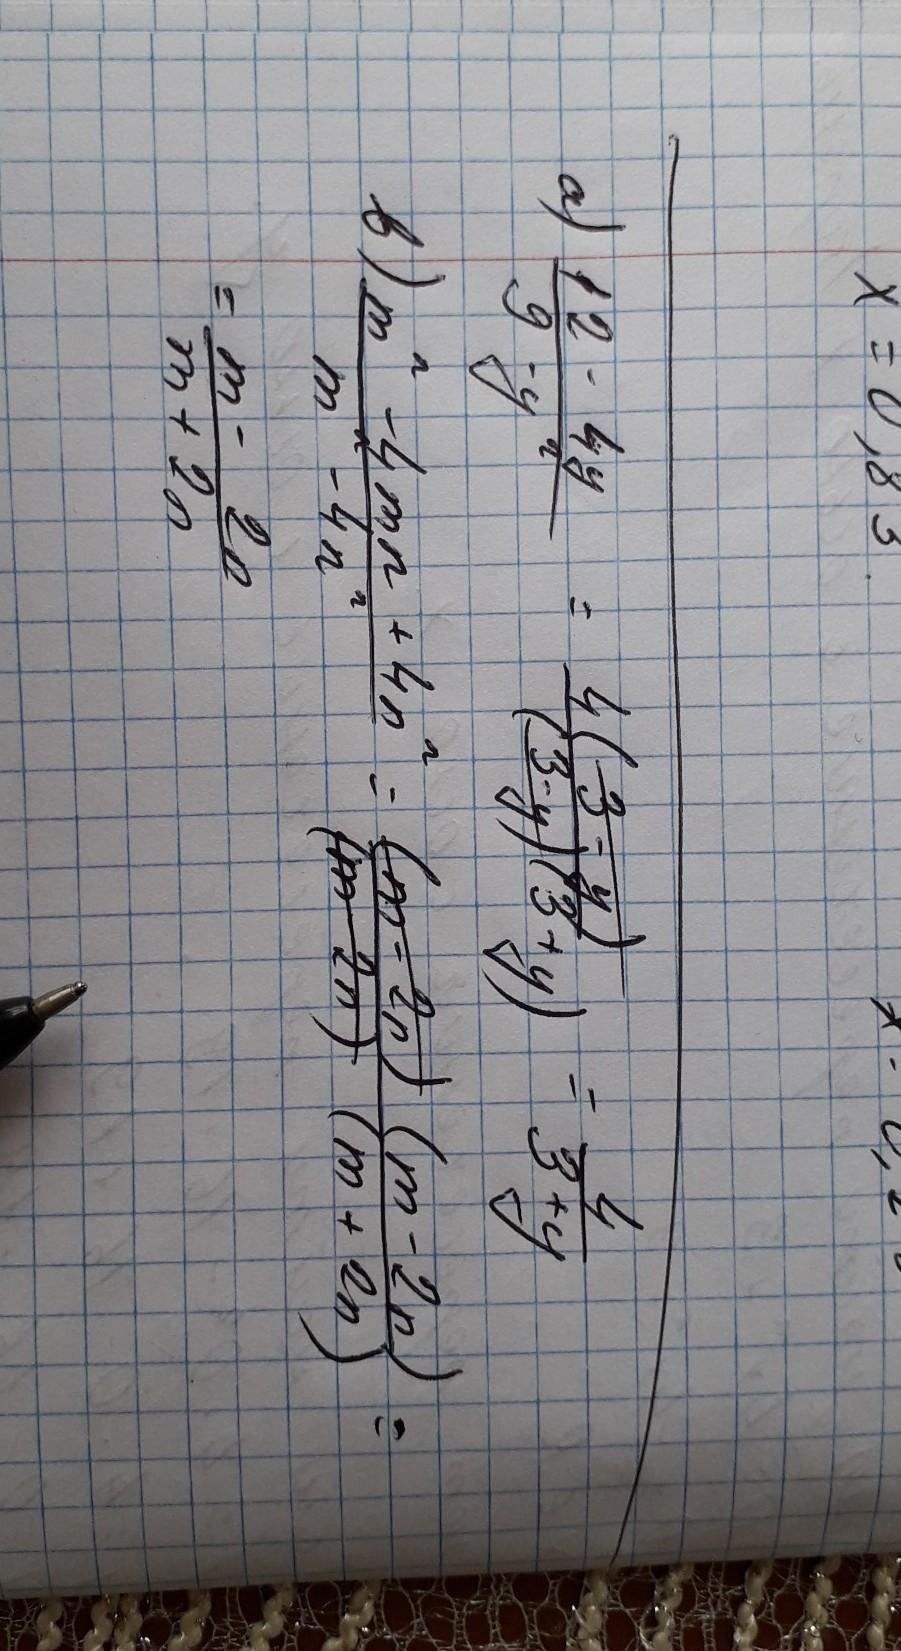 x = 0,83.
a) (12 - 4y)/(9 - y²) = 4(3 - y)/((3 - y)(3 + y)) = 4/(3 + y)
b) (m² - 4mn + 4n²)/(m² - 4n²) = (m - 2n)(m - 2n)/((m - 2n)(m + 2n)) =
= (m - 2n)/(m + 2n)